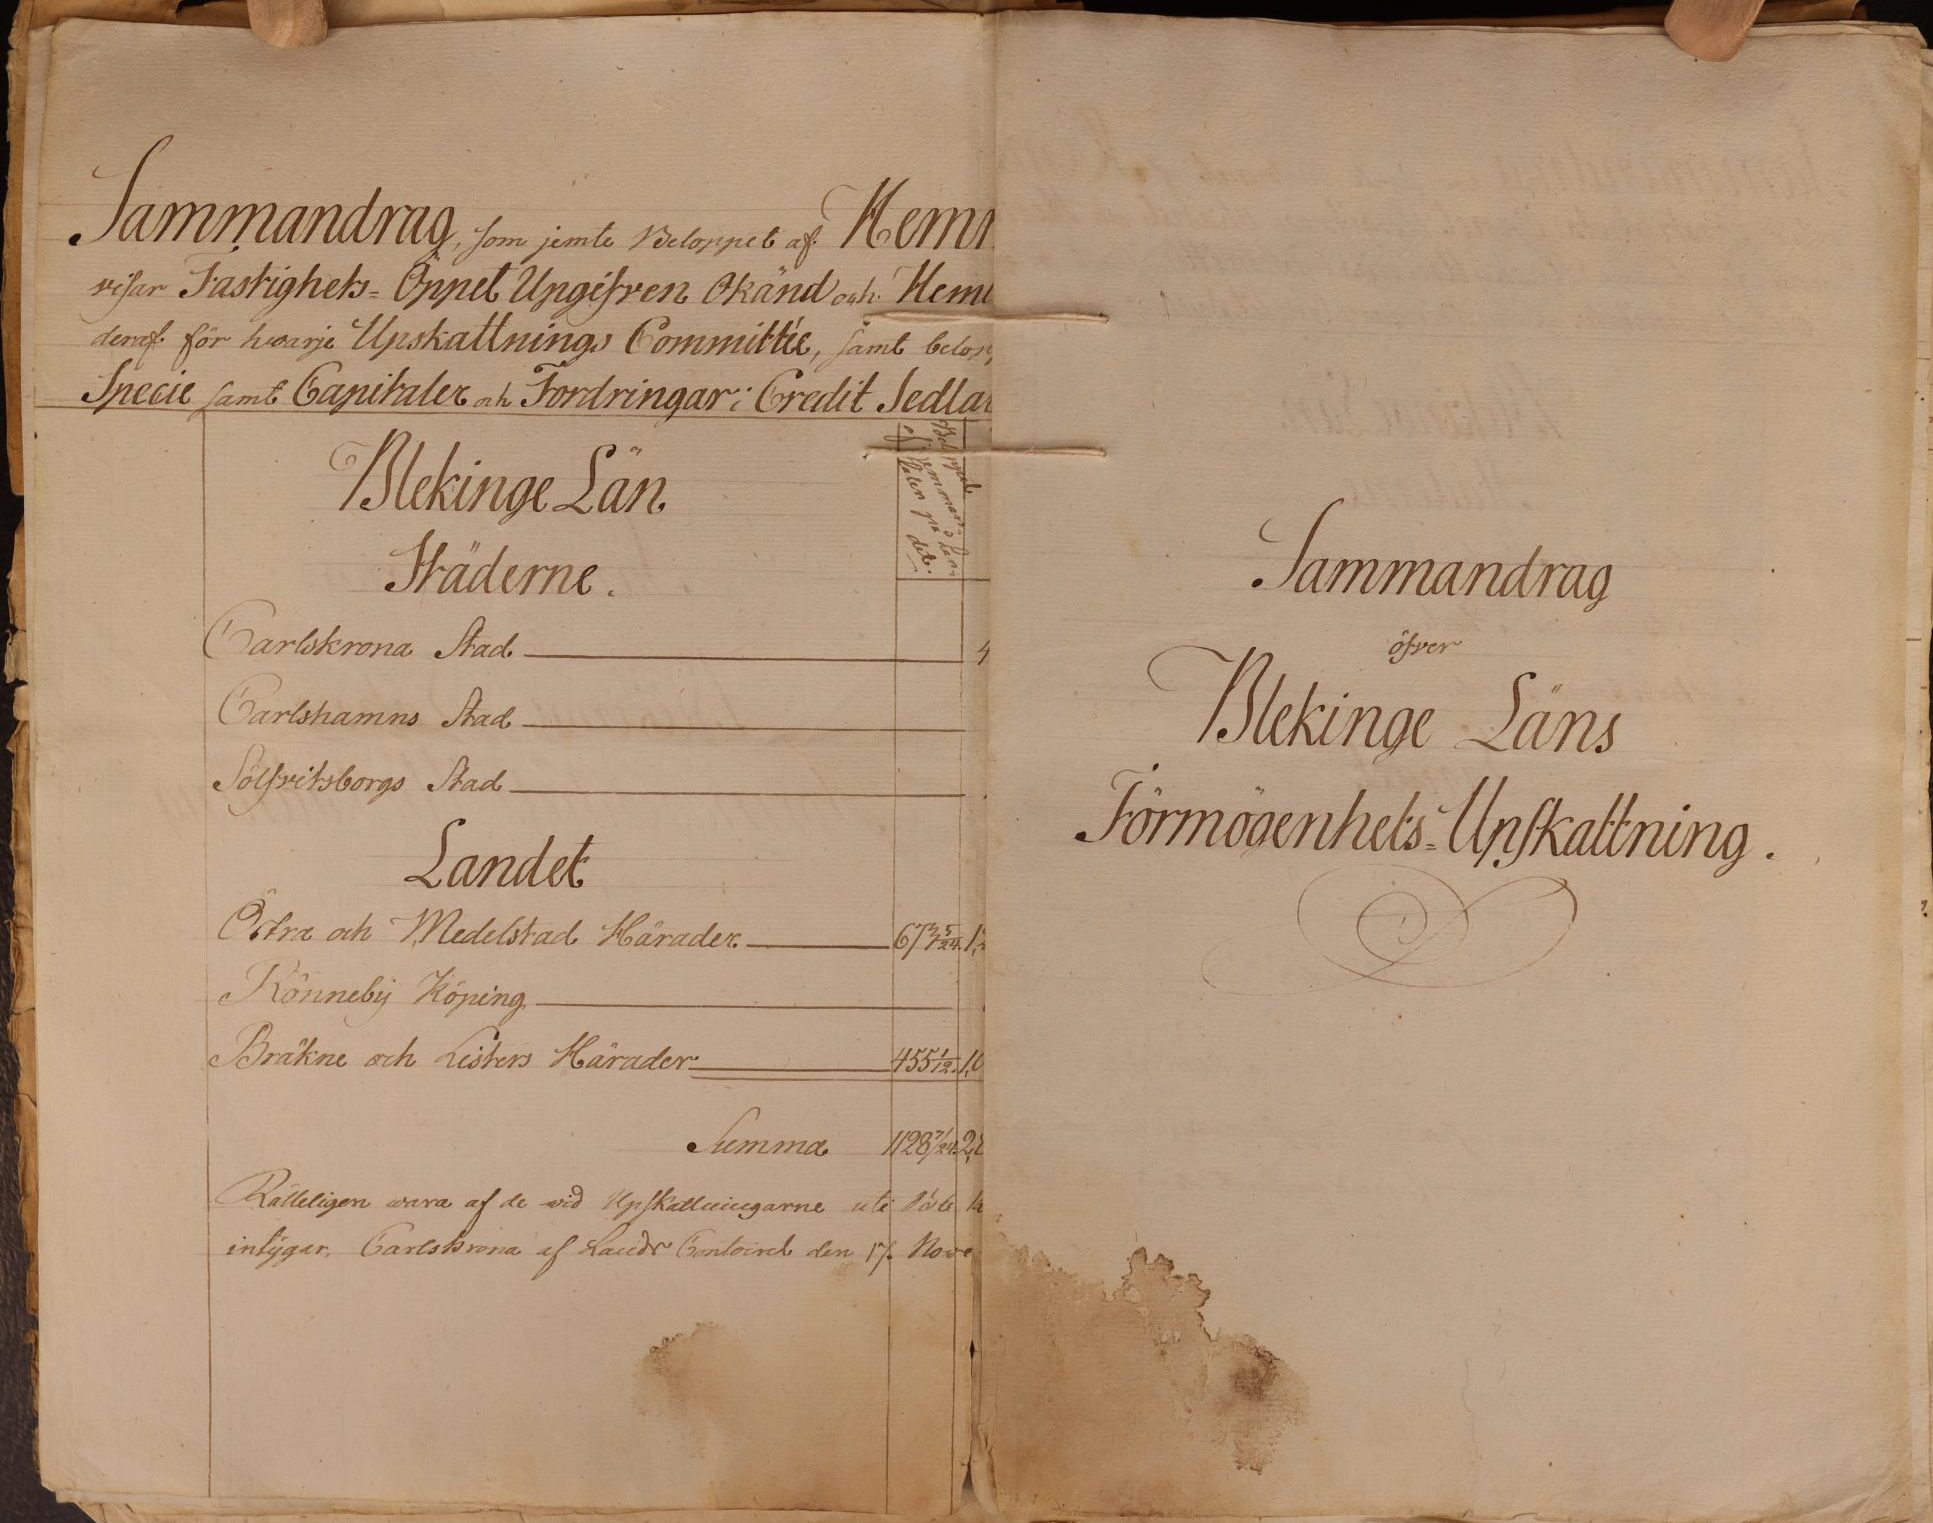 Sammandrag, som jemte Beloppet af Hem
visar Fastighets= Öppet Upgifven Okänd och Hem
deraf för hwarje Upskattnings Committée, samt belop
Specie samt Capitaler och Fordringar i Credit Sedlar
Blekinge Län
Städerne.
Carlskrona Stad
Carlshamns Stad
Sölfvitsborgs Stad
Landet
Östra och Medelstad Härader 673 5/24
Rönneby Köping
Bräkne och Listers Härader 455 1/12
Summa 1128 7/24
Rätteligen wara af de wid Upskattningarne
intygar. Carlskrona af Lands Contoiret den 17. Nove
Sammandrag
öfver
Blekinge Läns
Förmögenhets=Upskattning.